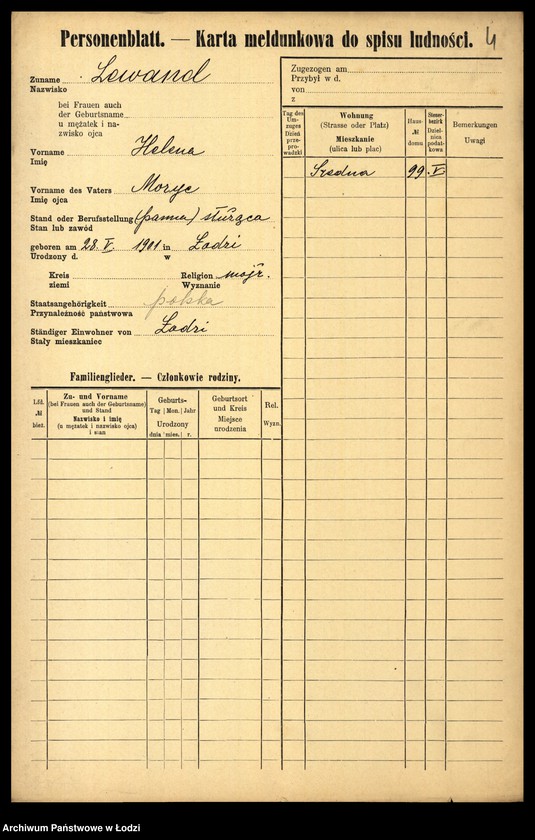 Personenblatt. — Karta meldunkowa do spisu ludności. 4
Zuname Lewand
Nazwisko
bei Frauen auch
der Geburtsname
u mężatek i na-
zwisko ojca
Vorname Helena
Imię
Vorname des Vaters Moryc
Imię ojca
Stand oder Berufsstellung (panna) służąca
Stan lub zawód
geboren am 28. V. 1901 in Łodzi
Urodzony d. w
Kreis Religion mojż.
ziemi Wyznanie
Staatsangehörigkeit polska
Przynależność państwowa
Ständiger Einwohner von Łodzi
Stały mieszkaniec
Familienglieder. — Członkowie rodziny.
Lfd.
№
bież.
Zu- und Vorname
(bei Frauen auch der Geburtsname)
und Stand
Nazwisko i imię
(u mężatek i nazwisko ojca)
i stan
Geburts-
Tag Mon. Jahr
Urodzony
dnia mies. r.
Geburtsort
und Kreis
Miejsce
urodzenia
Rel.
Wyzn.
Zugezogen am
Przybył w d.
von
z
Tag des
Um-
zuges
Dzień
prze-
pro-
wadzki
Wohnung
(Strasse oder Platz)
Mieszkanie
(ulica lub plac)
Haus-
№
domu
Steuer-
bezirk
Dziel-
nica
podat-
kowa
Bemerkungen
Uwagi
Średnia 99 V.
Archiwum Państwowe w Łodzi